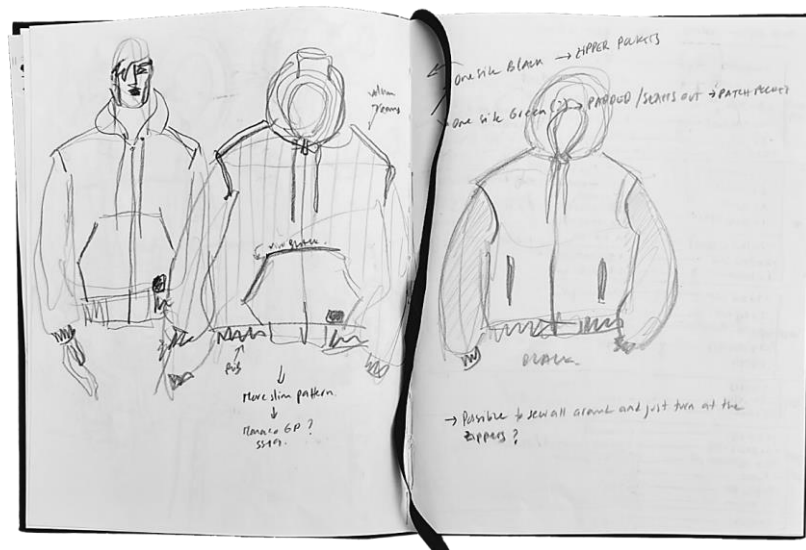 One side Black → ZIPPER POCKETS
One side Green (?) → PADDED / SEAMS OUT → PATCH POCKET
Rib
More slim pattern
Monaco GP ?
SS19.
BLACK
→ Possible to sew all around and just turn at the
ZIPPERS ?